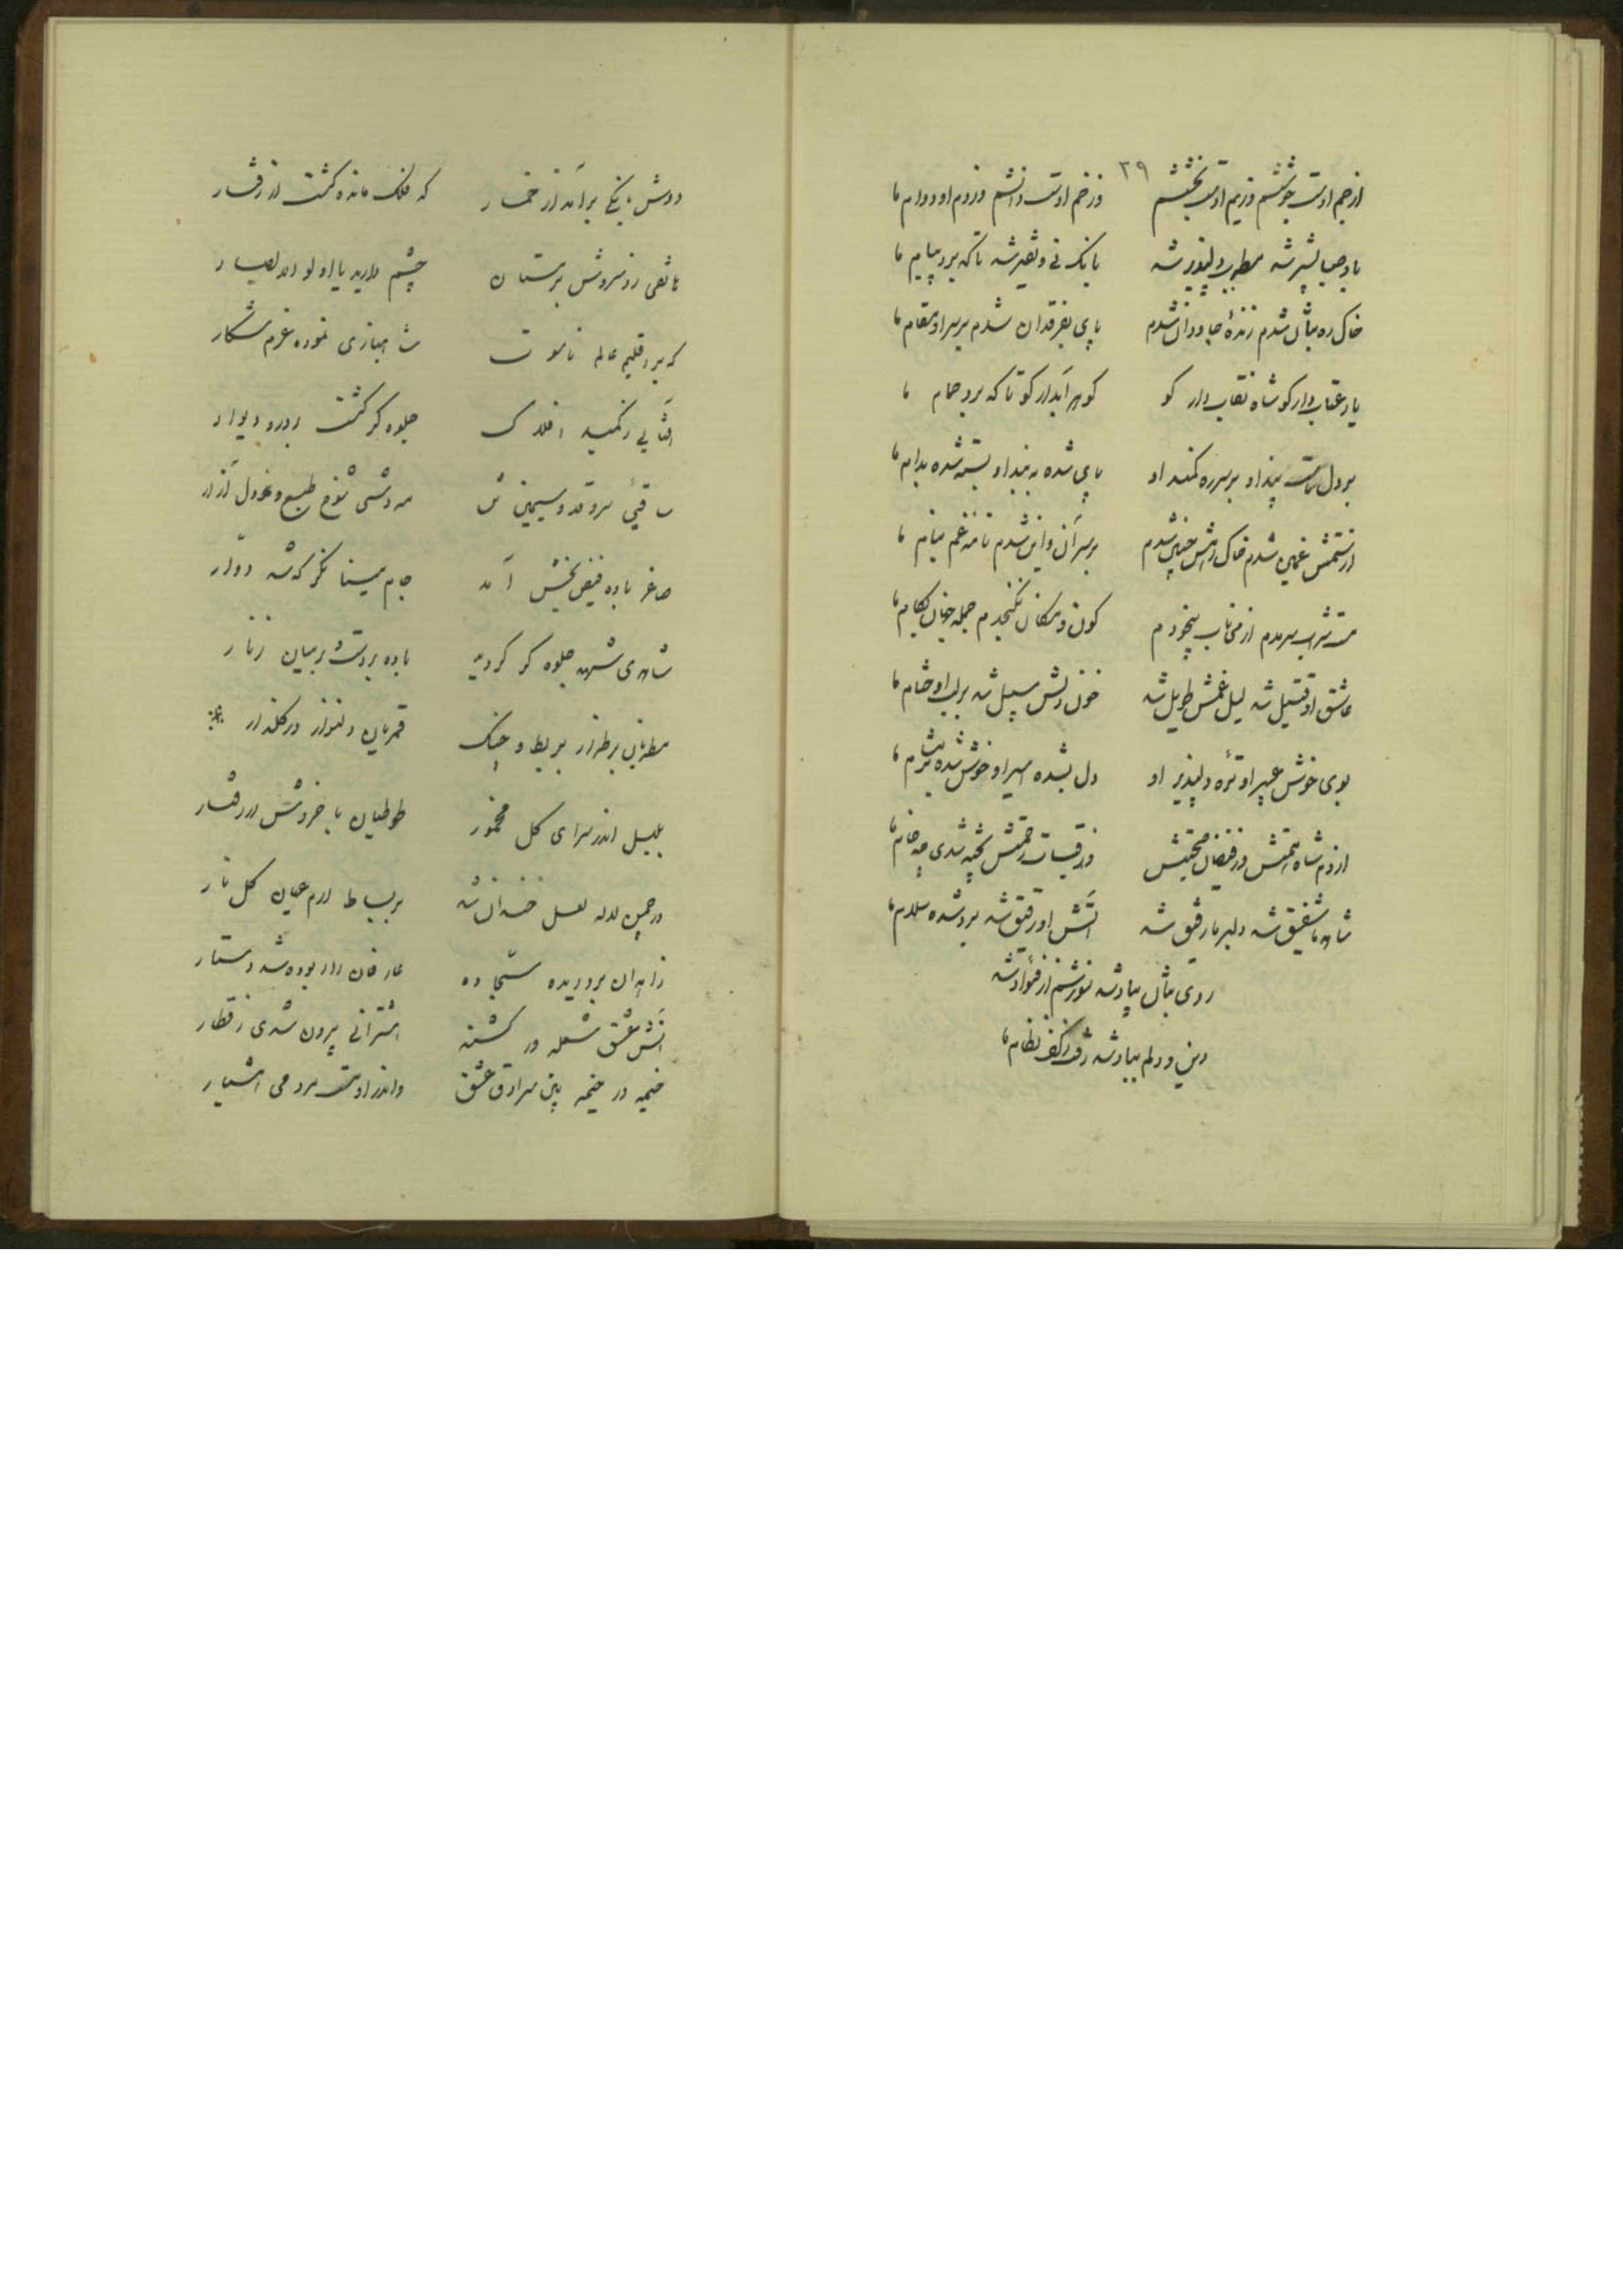 ۳۹
از جم اوست جوششم وز یم اوست بخششم وز خم اوست دانشم وز دم او دوام ما
باد صبا بشیر شه مطرب دلپذیر شه بانک نی و نفیر شه تا که برد پیام ما
خاک ره بتان شدم زنده جاودان شدم پای بفرقدان شدم بر سر او مقام ما
یار عتاب دار کو شاه نقاب دار کو کوهر آبدار کو تا که برد حمام ما
بر دل ماست پند او بر سر ره کمند او پای شده به بند او بسته شده بدام ما
از ستمش غمین شدم خاک رهش چنین شدم بر سر آن و این شدم تا مه غم بنام ما
مست شراب سرمدم از می ناب بیخودم کون و مکان نکنجدم جمله جهان بکام ما
عاشق او قتیل شه لیل غمش طویل شه خون دلش سبیل شه بر لب او حشام ما
بوی خوش عبیر او تره دلپذیر او دل بشده اسیر او خوش شده مشام ما
از دم شاه همتش وز فیضان محبتش وز قبسات رحمتش پخته شدی چه خام ما
شاه ما شفیق شه دلبر ما رفیق شه آتش او رقیق شه برد شده سلام ما
روی بتان بیاد شه شورشم از فؤاد شه
دین و دلم بباد شه رفت ز کف نظام ما
دوش بانکی بر آمد از خمار که فلک مانده کشت از رفتار
هاتفی زد سروش بر مستان چشم دارید یا اولو الابصار
که بر اقلیم عالم ناسوت شاهبازی نموده عزم شکار
آفتابی ز کنبد افلاک جلوه کر کشت بر در و دیوار
ساقیئ سرو قد و سیمین تن مه وشی شوخ طبع و دل آزار
ساغر باده فیض بخش آمد جام مینا نکر که شد دوار
شاهدی شهره جلوه کر کردید باده بر دست و بر میان زنار
مطربان بر طراز بربط و چنک قمریان دلنواز در کلزار
بلبل اندر سرای کل مخمور طوطیان با خروش در رفتار
در چمن لاله لعل خندان شد بر بساط ارم عیان کل نار
زاهدان بر دریده سجاده عارفان را ربوده شد دستار
آتش عشق شعله ور کشته اشترانی برون شدی ز قطار
خیمه در خیمه بین سرادق عشق واندر اوست مردمی هشیار